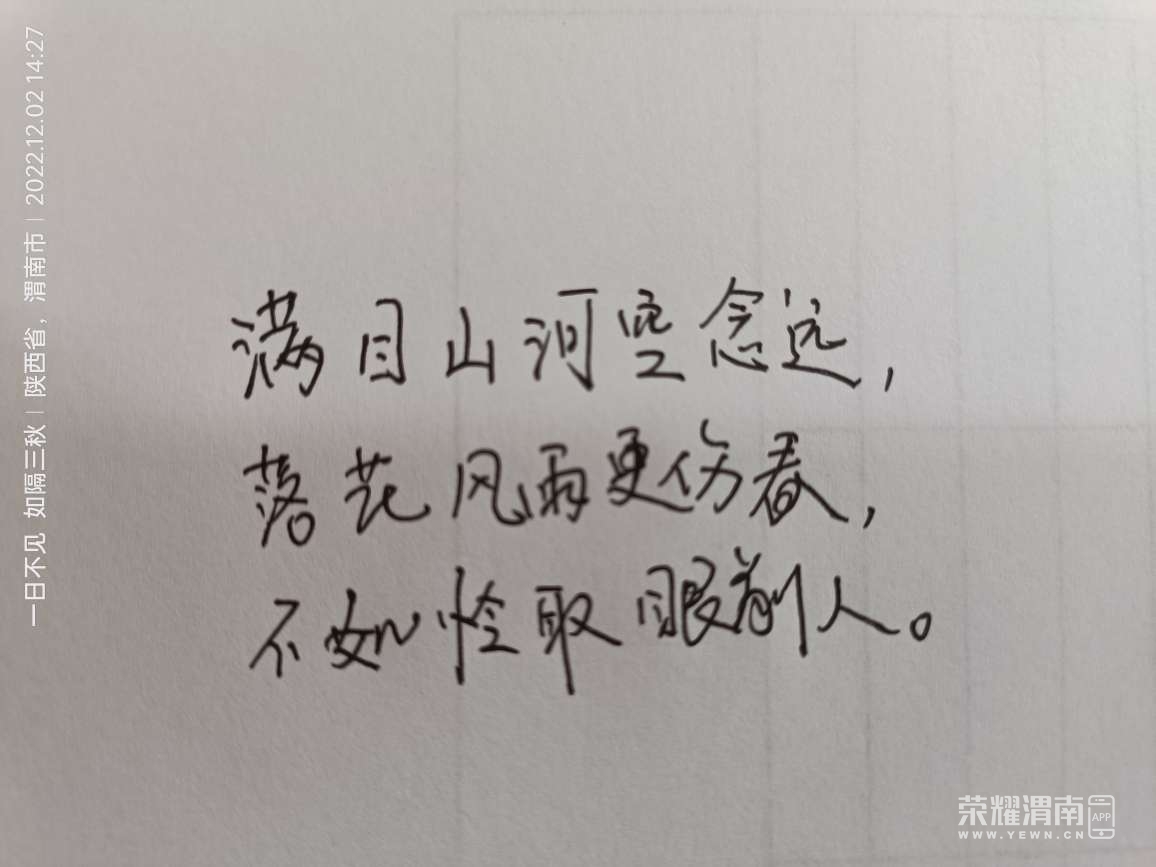 一日不见 如隔三秋 | 陕西省，渭南市 | 2022.12.02 14:27
满目山河空念远，
落花风雨更伤春，
不如怜取眼前人。
荣耀渭南 APP
WWW.YEWN.CN